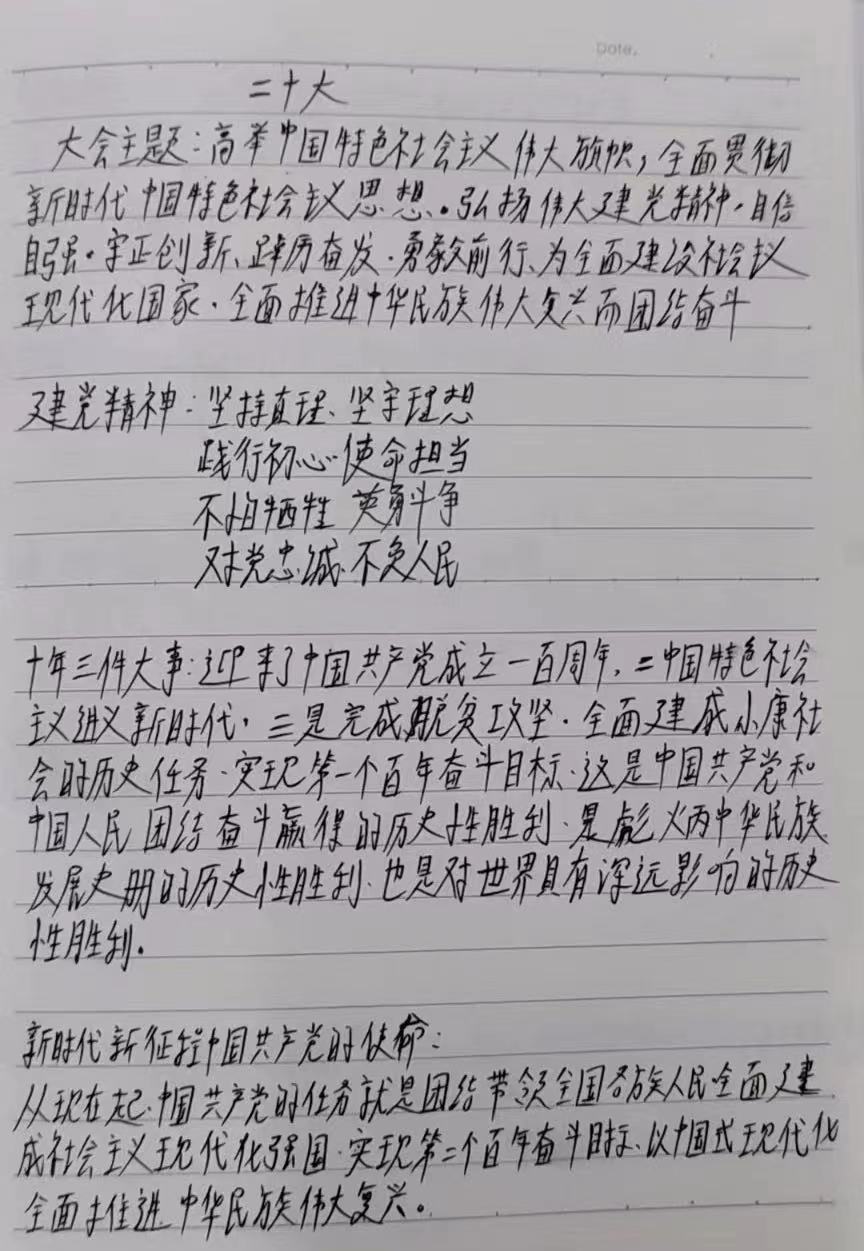 Date.
二十大
大会主题:高举中国特色社会主义伟大旗帜,全面贯彻
新时代中国特色社会主义思想。弘扬伟大建党精神,自信
自强。守正创新、踔厉奋发.勇毅前行、为全面建设社会主义
现代化国家.全面推进中华民族伟大复兴而团结奋斗
建党精神:坚持真理、坚守理想
践行初心 使命担当
不怕牺牲 英勇斗争
对党忠诚.不负人民
十年三件大事:迎来了中国共产党成立一百周年,二中国特色社会
主义进入新时代,三是完成脱贫攻坚.全面建成小康社
会的历史任务.实现第一个百年奋斗目标.这是中国共产党和
中国人民团结奋斗赢得的历史性胜利.是彪火丙中华民族
发展史册的历史性胜利.也是对世界具有深远影响的历史
性胜利.
新时代新征程中国共产党的使命:
从现在起.中国共产党的任务就是团结带领全国各族人民全面建
成社会主义现代化强国.实现第二个百年奋斗目标、以中国式现代化
全面推进中华民族伟大复兴。